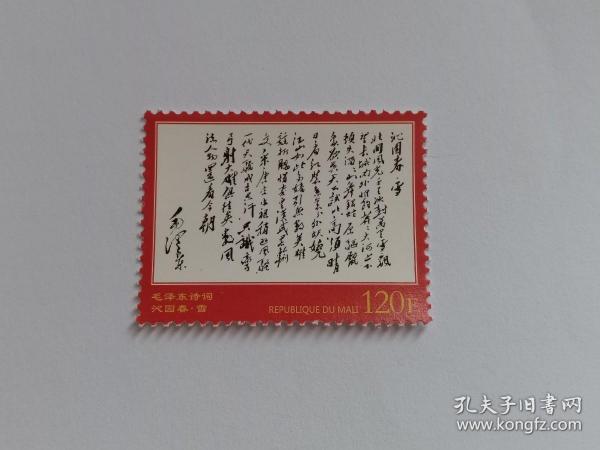 沁园春 雪
北国风光千里冰封万里雪飘
望长城内外惟余莽莽大河上下
顿失滔滔山舞银蛇原驰蜡
象欲与天公试比高须晴
日看红装素裹分外妖娆
江山如此多娇引无数英雄
竞折腰惜秦皇汉武略输
文采唐宗宋祖稍逊风骚
一代天骄成吉思汗只识弯
弓射大雕俱往矣数风
流人物还看今朝
毛泽东
毛泽东诗词
沁园春·雪
REPUBLIQUE DU MALI 120F
孔夫子旧书网
www.kongfz.com